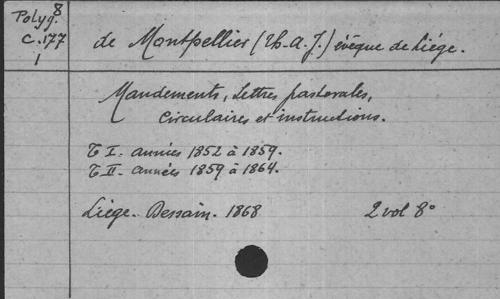 Polyg. 8
C. 177
1
de Montpellier (Th. A. J.) évêque de Liége.
Mandements, Lettres pastorales,
Circulaires et instructions.
T I. années 1852 à 1859.
T II. années 1859 à 1864.
Liége. Dessain. 1868 2 vol 8°